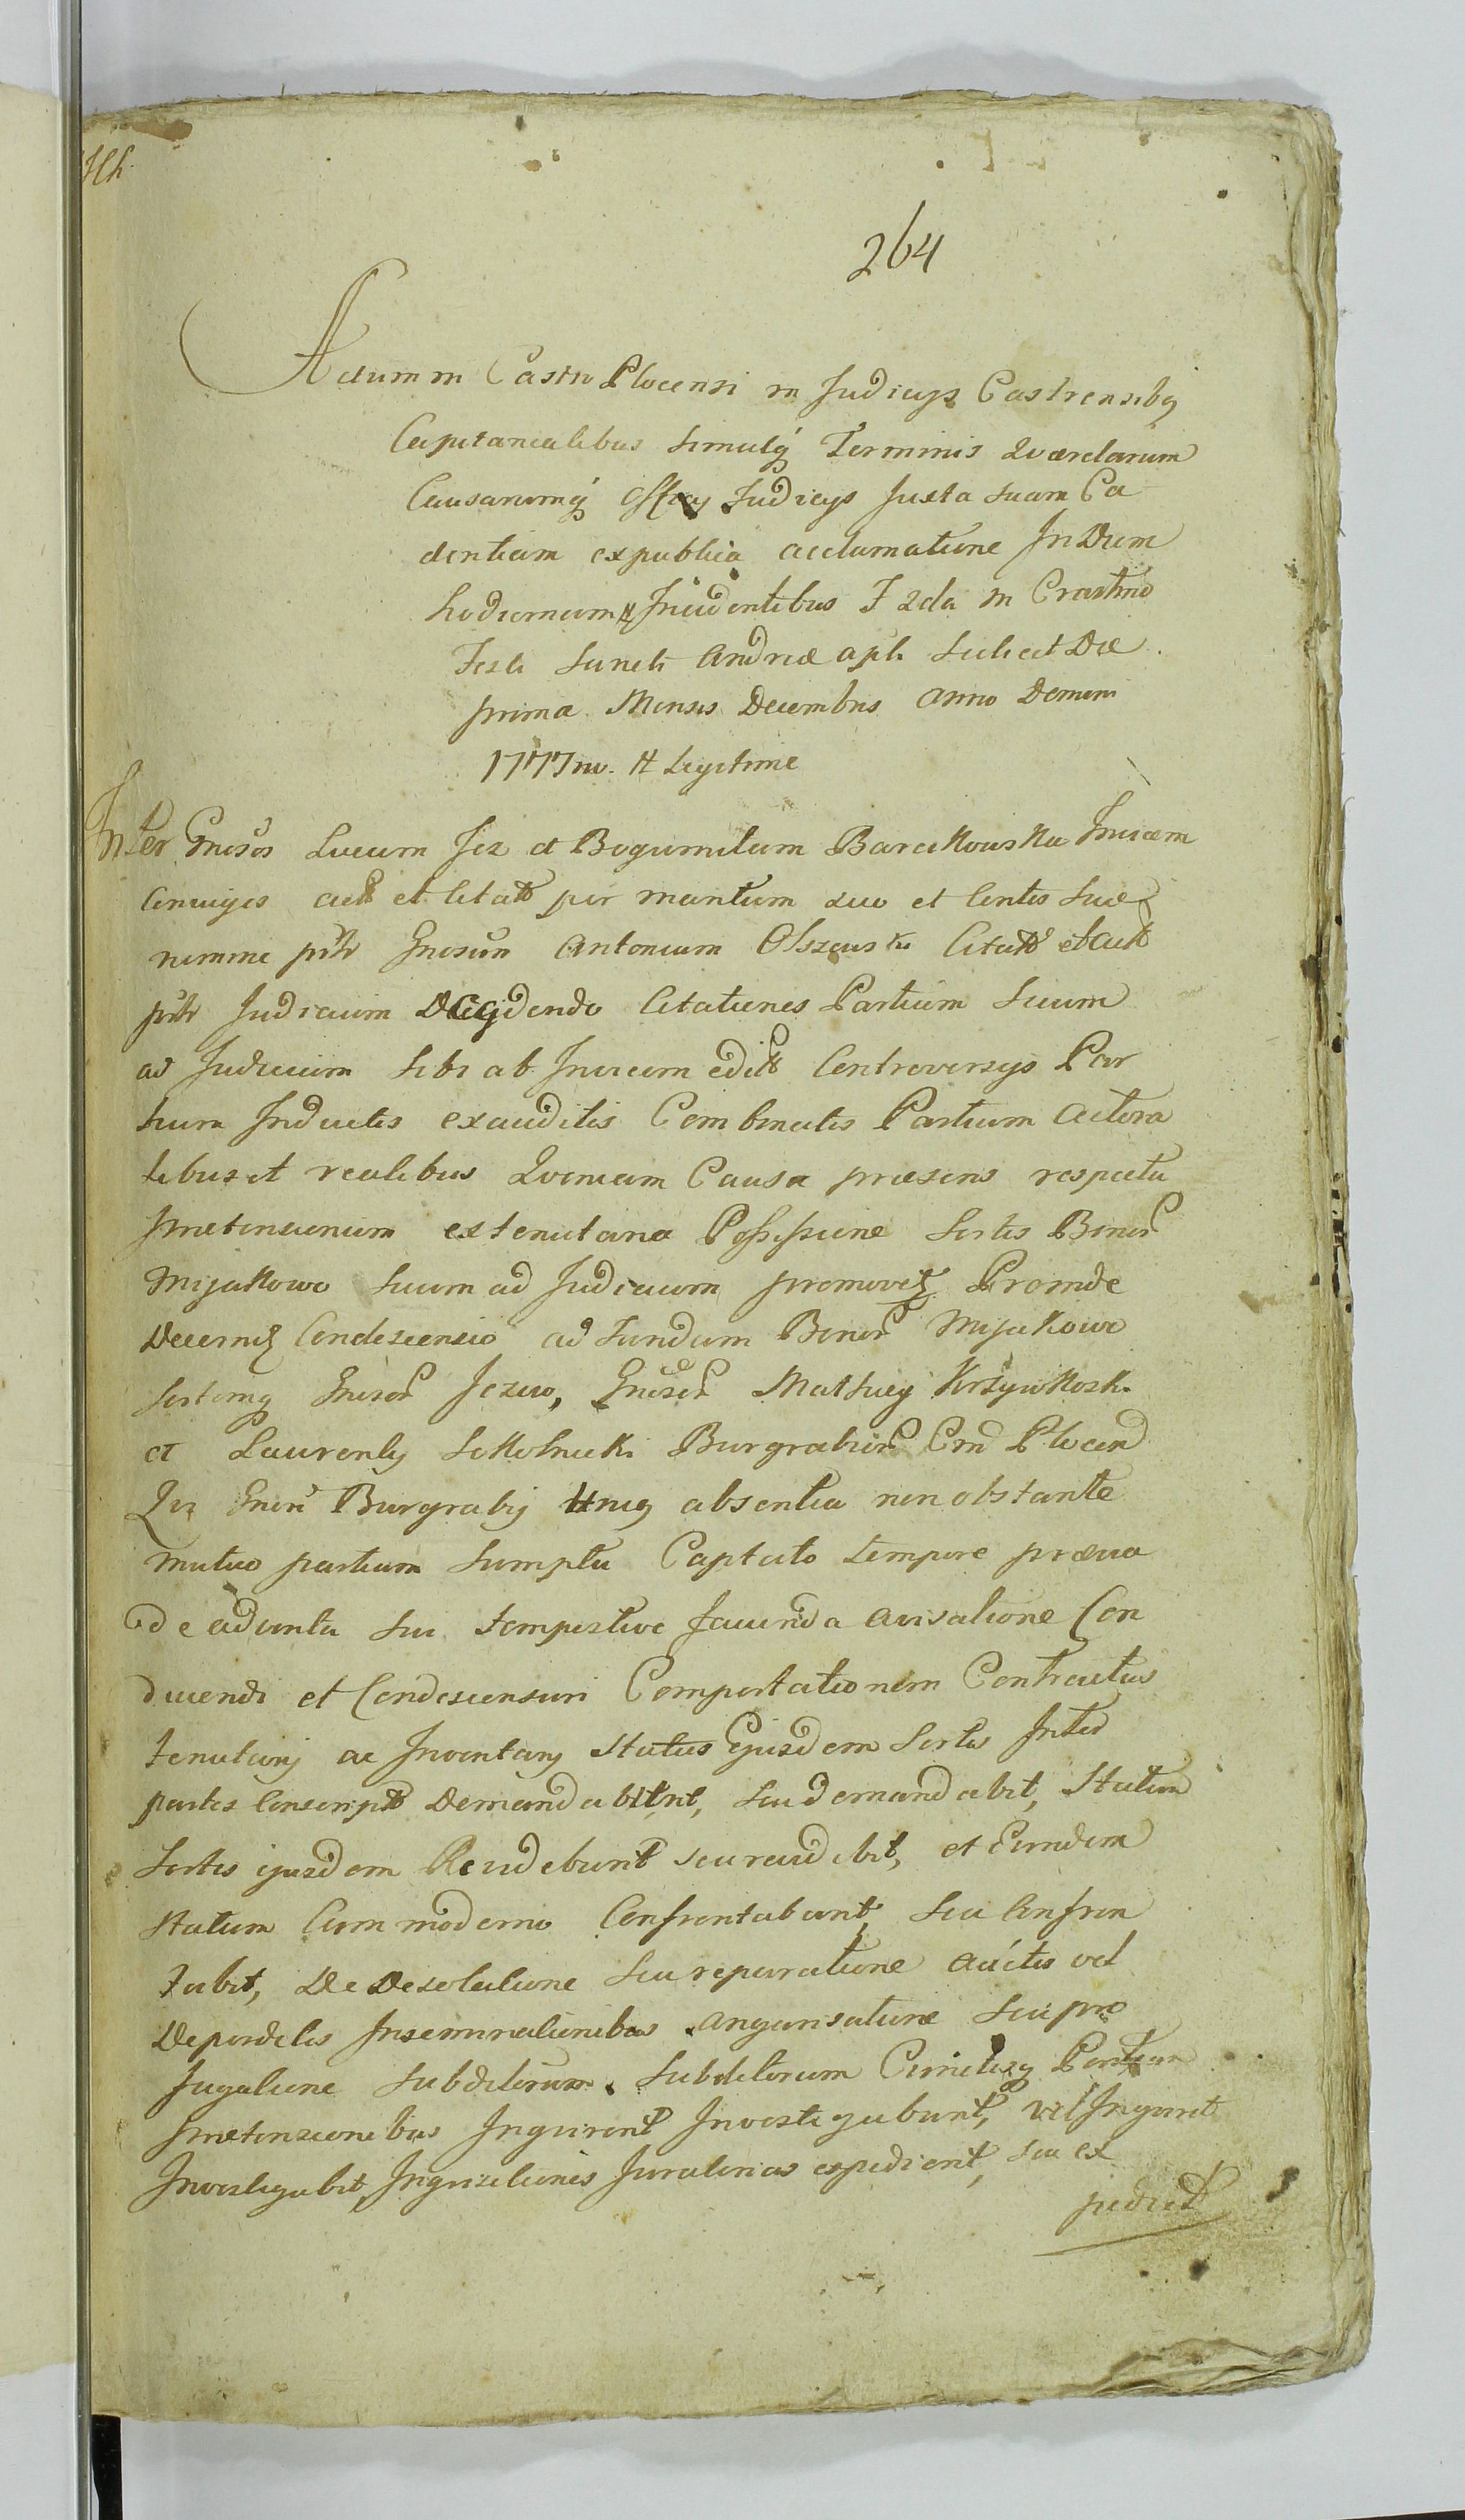 264
Actum in Castro Plocensi in Judicijs Castrensibq
Capitanealibus simulq Terminis Quaerelarum
Causarumq Officij Judicijs Juxta suam Ca
dentiam ex publica acclamatione In Diem
hodiernum # Incidentibus F 2da in Crastino
Festi Sancti Andreae Apli scilicet Die
prima Mensis Decembris Anno Domini
1777mo. # Legitime
Inter Gnosos Lucam Jez et Bogumilam Barcikowska Invicem
Conjuges act et Citat per maritum suo et Contis suae
nomine ptr Gnosum Antonium Olszewski Citat et act
ptr Judicium Decydendo Citationes Partium Suum
ad Judicium Sibi ab Invicem edit Controversijs Par
tium Inductis exauditis Combinatis Partium actora
libus et realibus Quoniam Causa praesens respectu
praetensionum ex tenutaria Possessione Sortis Bonor
Mijakowo Suum ad Judicium promovet Proinde
Decernit Condescensio ad Fundum Bonor Mijakowo
Sortemq Gnosor Jezow, Gnosor Mathiey Krzywkosk
et Laurentij Sokolnicki Burgrabior Cri Plocen
Qui Gnosi Burgrabij Uniq absentia non obstante
mutuo partium Sumptu Captato tempore praevia
de adventu sui tempestive facienda avisatione Con
ducendi et Condescensuri Comportationem Contractus
tenutarij ac Inventarij Status Ejusdem Sortis Inter
partes Conscript Demandabunt, seu demandabit, Statum
Sortis ejusdem Revidebunt seu revidebit, et Eundem
Statum Cum moderno Confrontabunt, seu Confron
tabit, De Desolatione seu reparatione auctis vel
Deperditis Inseminationibus angarisatione seu pro
fugatione Subditorum Subditorum Cunctisq Partium
praetensionibus Inquirent Investigabunt, vel Inquiret
Investigabit, Inquisitiones Juratorias expedient, seu ex
pediet